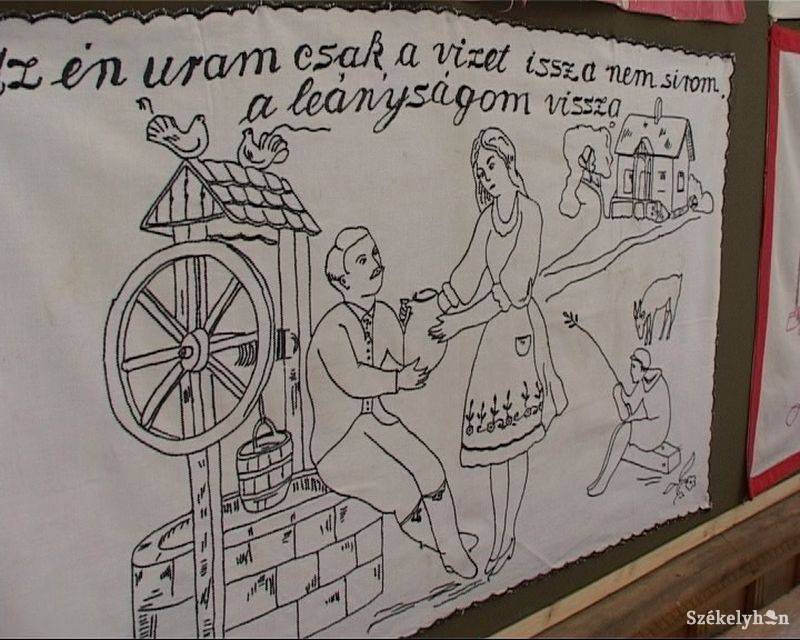 Az én uram csak a vizet issza nem sirom,
a leányságom vissza
Székelyhon